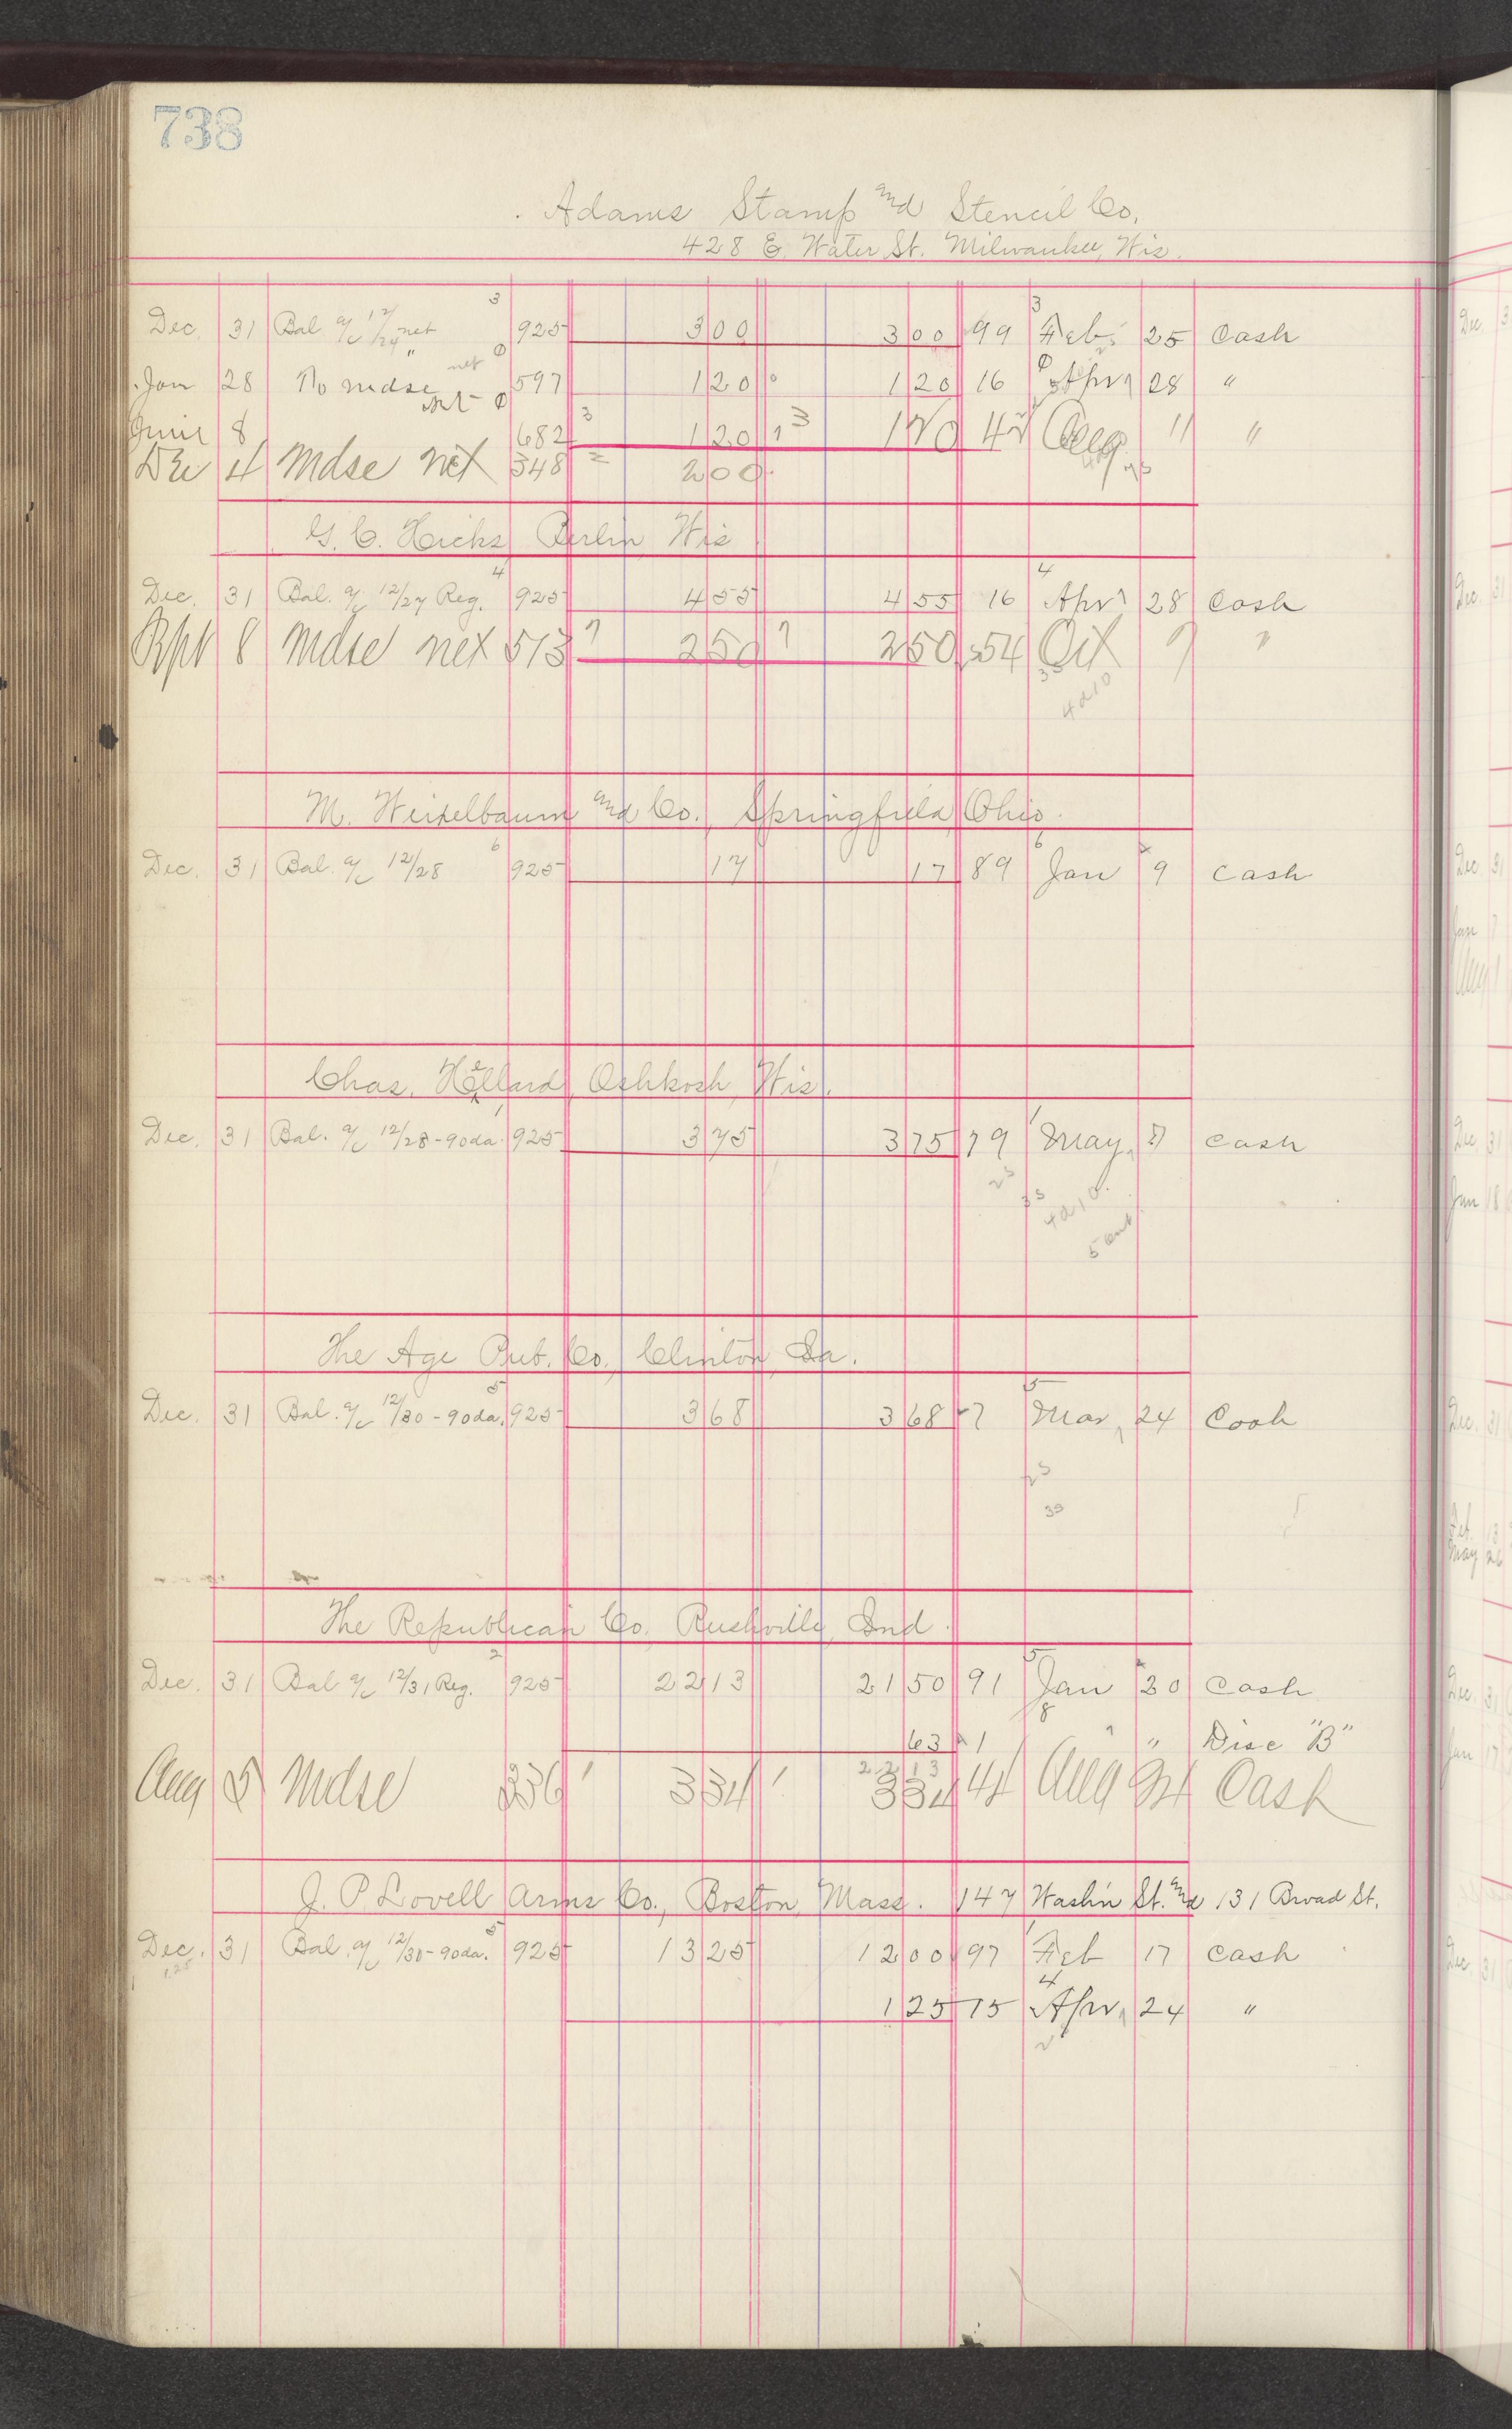 738
Adams Stamp and Stencil Co.
428 E. Water St. Milwaukee, Wis.
3 3
Dec. 31 Bal. a/c 12/24 net 925 3 00 3 00 99 Feb. 25 Cash
Jan 28 To mdse net 597 1 20 1 20 16 Apr 28 "
June 8 net 682 3 1 20 3 1 20 42 Aug 11 "
Dec 4 Mdse net 348 2 00
G. C. Hicks, Berlin, Wis
4 4
Dec. 31 Bal. a/c 12/27 Reg. 925 4 55 4 55 16 Apr 28 Cash
Sept 8 Mdse net 513 7 2 50 7 2 50 54 Oct 7 "
4 a 10
M. Weixelbaum and Co., Springfield, Ohio.
6 6
Dec. 31 Bal. a/c 12/28 925 17 17 89 Jan 9 Cash
Chas. Hellard, Oshkosh, Wis.
Dec. 31 Bal. a/c 12/28 - 90 da. 925 3 75 3 75 79 May 7 Cash
23
33
4 a 10
The Age Pub. Co., Clinton, Ia.
5 5
Dec. 31 Bal. a/c 12/30 - 90 da. 925 3 68 3 68 Mar 24 Cash
33
The Republican Co., Rushville, Ind.
2 5
Dec. 31 Bal a/c 12/31 Reg. 925 22 13 21 50 91 Jan 30 Cash
63 91 " " Disc "B"
22 13
Aug 5 Mdse 336 3 34 3 34 44 Aug 24 Cash
J. P. Lovell Arms Co., Boston, Mass. 147 Wash'n St. and 131 Broad St.
Dec. 31 Bal. a/c 12/30 - 90 da. 925 13 25 12 00 97 Feb 17 Cash
1 25 15 Apr 24 "